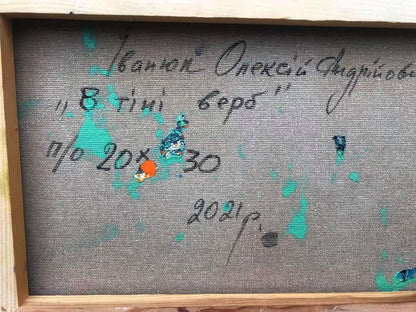 Іванюк Олексій Андрійови
„В тіні верб"
п/о 20х30
2021р.